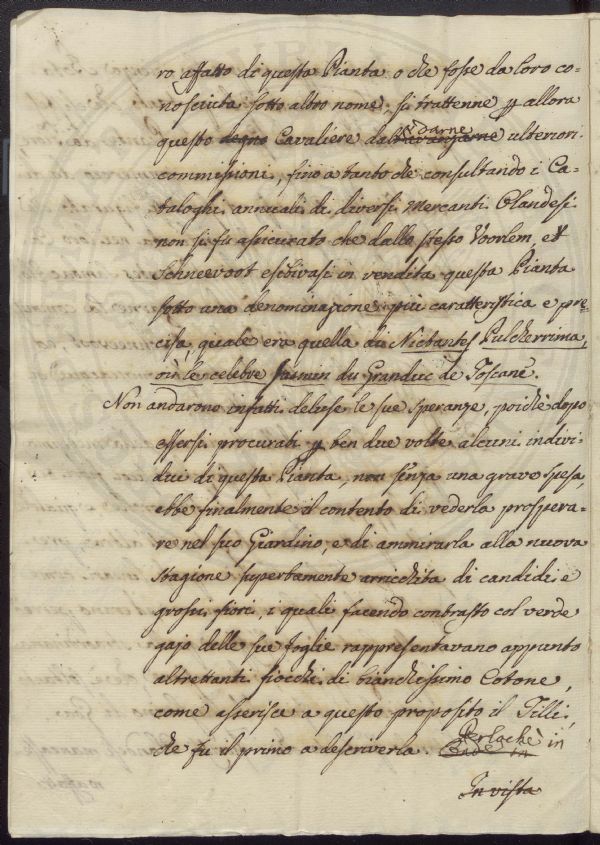 ro affatto di questa Pianta o che fosse da loro co-
nosciuta sotto altro nome, si trattenne p allora
questo degno Cavaliere dal darne ulteriori
commissioni, fino a tanto che consultando i Ca-
taloghi annuali di diversi Mercanti Olandesi
non si fù assicurato che dallo stesso Voorlem, et
Schneevoot esibivasi in vendita questa Pianta
sotto una denominazione più caratteristica e pre-
cisa, quale era quella di Nictantes Pulcherrima,
où le celebre Jasmin du Granduc de Toscane.
Non andarono infatti deluse le sue speranze, poichè dopo
essersi procurati p ben due volte alcuni indivi-
dui di questa Pianta, non senza una grave spesa,
ebbe finalmente il contento di vederla prospera-
re nel suo Giardino, e di ammirarla alla nuova
stagione superbamente arricchita di candidi e
grossi fiori, i quali facendo contrasto col verde
gajo delle sue foglie rappresentavano appunto
altrettanti fiocchi di bianchissimo Cotone,
come asserisce a questo proposito il Tilli,
che fù il primo a descriverla. Perlochè in
In vista